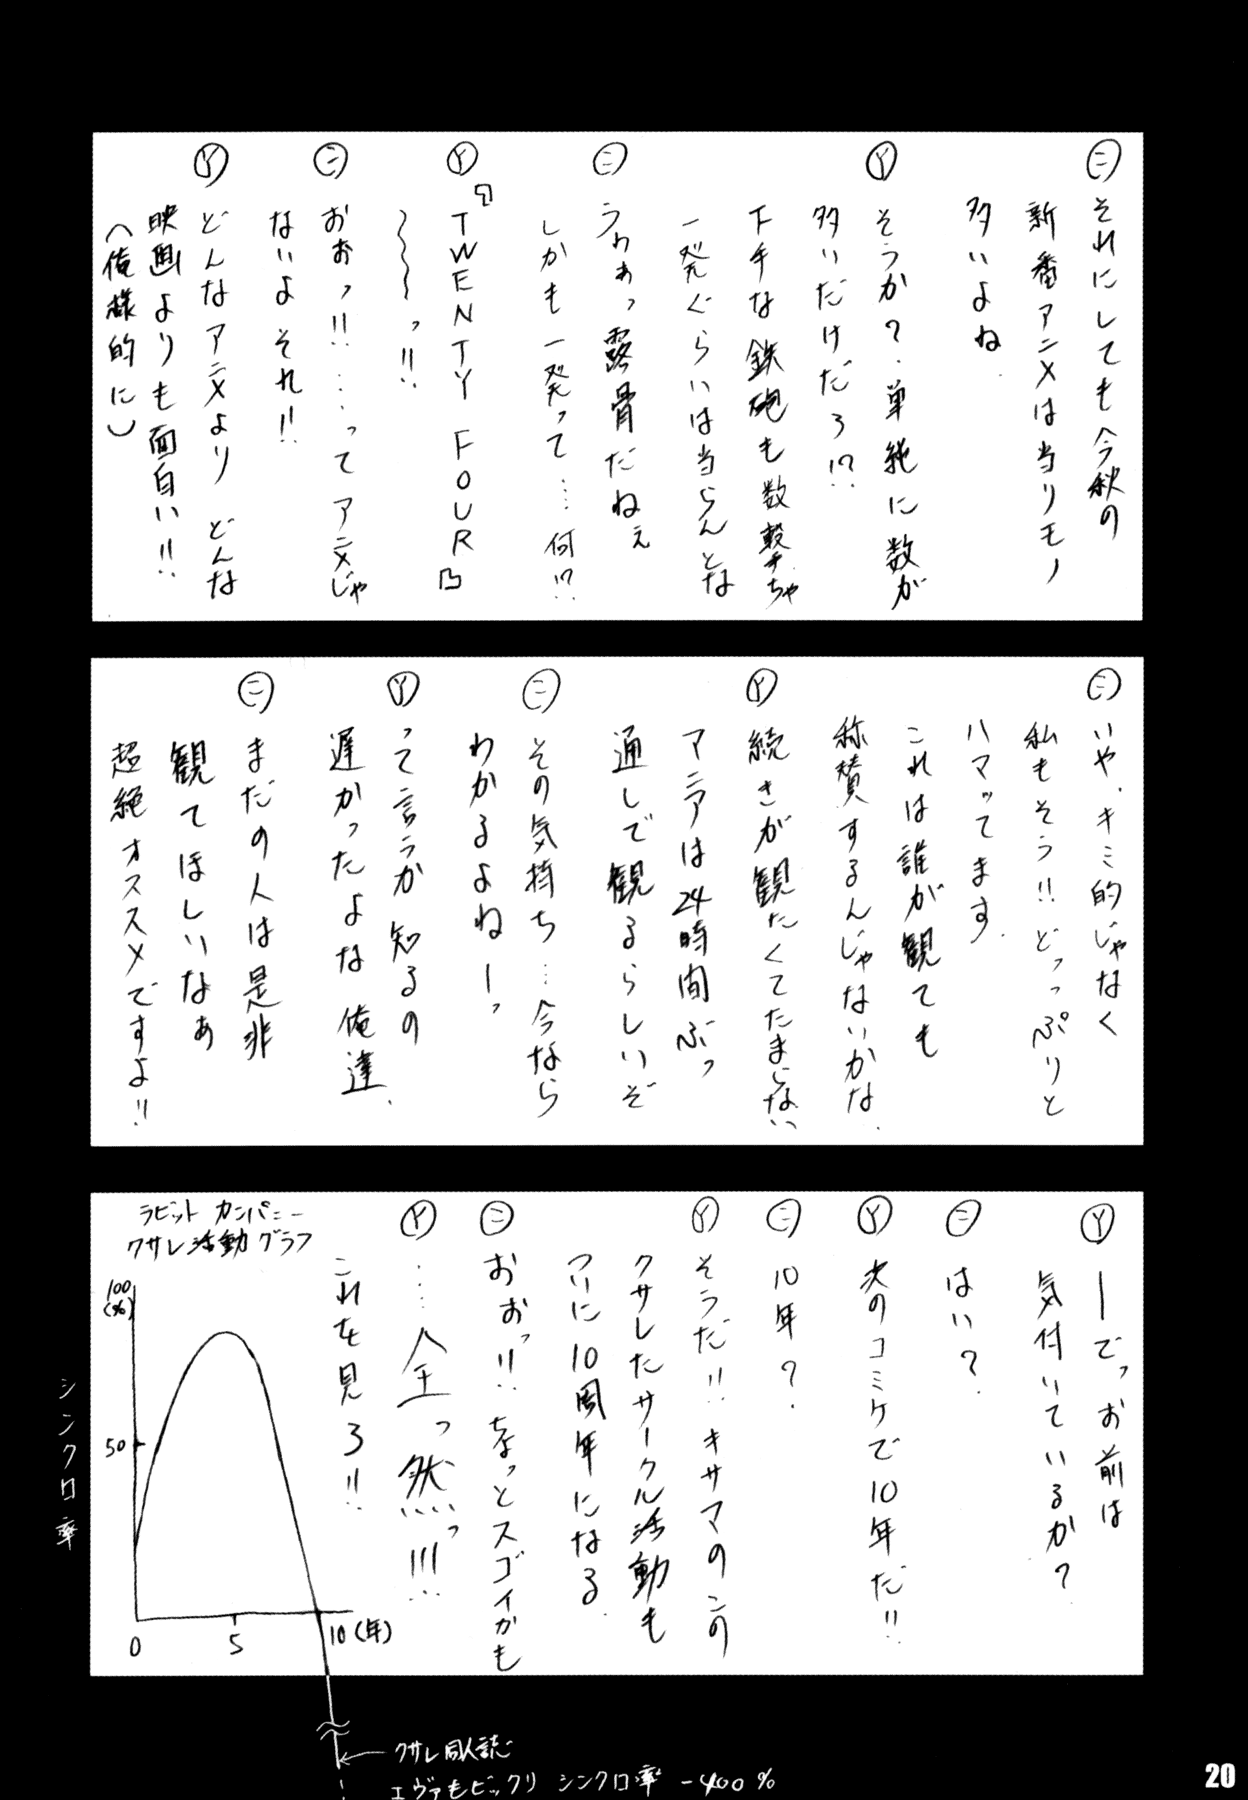 ㊁それにしても今秋の
新番アニメは当りモノ
多いよね.
Ⓨそうか?.単純に数が
多いだけだろ!?
下手な鉄砲も数撃ちゃ
一発ぐらいは当らんとな
㊁うわぁっ露骨だねぇ
しかも一発って…何!?
Ⓨ『TWENTY FOUR』
〜〜〜っ!!
㊁おぉっ!!…って アニメじゃ
ないよ それ!!
Ⓨどんなアニメより どんな
映画よりも面白い!!
(俺様的に)
㊁いや、キミ的じゃなく
私もそう!!どっっぷりと
ハマッてます.
これは誰が観ても
称賛するんじゃないかな.
Ⓨ続きが観たくてたまらない
マニアは24時間ぶっ
通しで観るらしいぞ
㊁その気持ち…今なら
わかるよねーっ
Ⓨって言うか知るの
遅かったよな 俺達.
㊁まだの人は是非
観てほしいなぁ
超絶オススメですよ!!
Ⓨーでっお前は
気付いているか?
㊁はい?
Ⓨ次のコミケで10年だ!!
㊁10年?
Ⓨそうだ!!キサマのこの
クサレたサークル活動も
ついに10周年になる
㊁おおっ!!ちょっとスゴイかも
Ⓨ……全っ然っ!!!
これを見ろ!!
ラビット カンパニー
クサレ活動グラフ
100
(%)
50
0
5
10(年)
シンクロ率
←クサレ同人誌
エヴァもビックリ シンクロ率 -400%
20